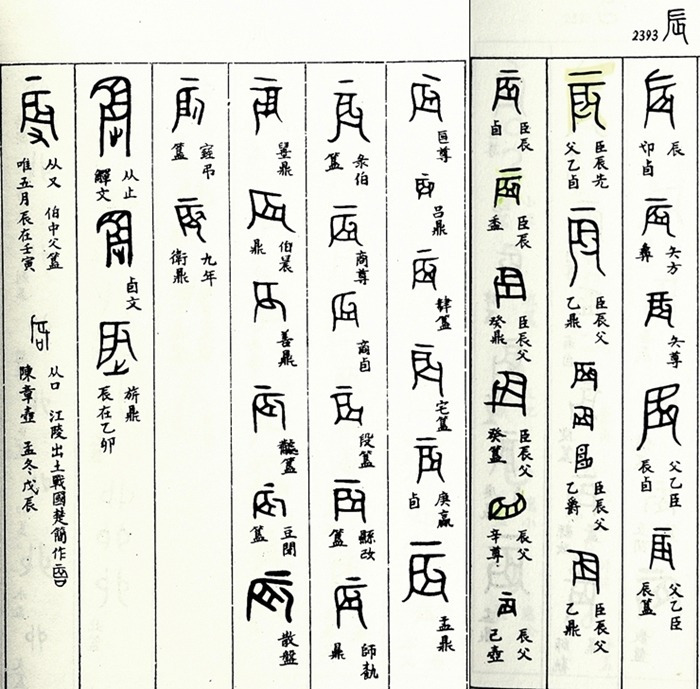 2393 辰
辰
卣
夨方
彝
夨尊
父乙臣
辰卣
父乙臣
辰簋
臣辰先
父乙卣
臣辰父
乙鼎
臣辰父
乙爵
臣辰父
乙鼎
臣辰
卣
臣辰
盉
臣辰父
癸鼎
臣辰父
癸簋
辰父
辛尊
辰父
己壺
尊
呂鼎
簋
宅簋
庚嬴
卣
盂鼎
彔伯
簋
商尊
商卣
段簋
縣改
簋
師
鼎
鼎
伯
鼎
善鼎
簋
豆閉
簋
散盤
弔
簋
九年
衛鼎
从止
觶文
卣文
旂鼎
辰在乙卯
从又 伯中父簋
唯五月辰在壬寅
从口 江陵出土戰國楚簡作
陳章壺 孟冬戊辰